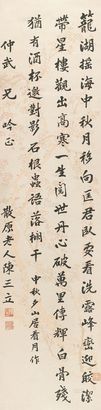 籠湖搖海中秋月移向匡君臥處看洗露峰巒迎皎潔
帶星樓觀出高寒一生閱世丹心破萬里傳輝白骨殘
猶有酒杯邀對影石根蟲語落欄干 中秋夕山居看月作
仲武 兄 吟正 散原老人陳三立